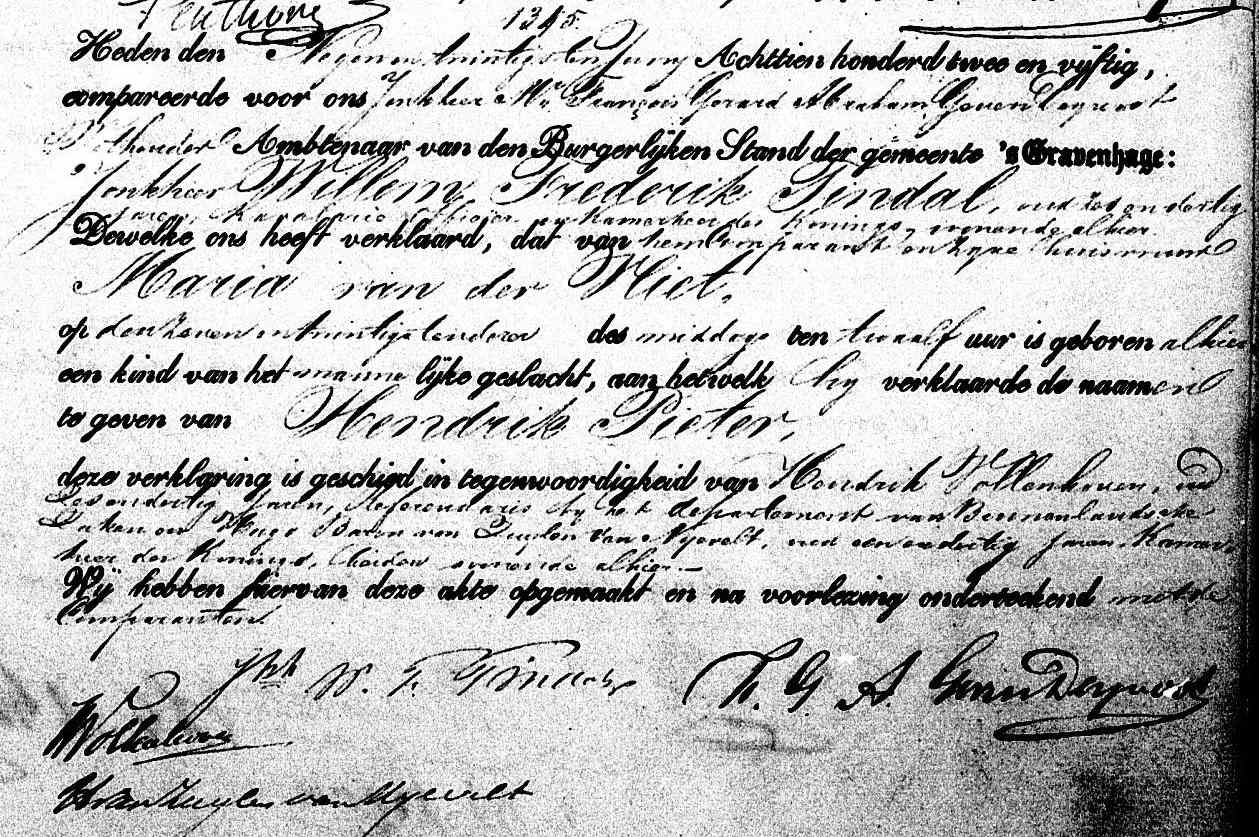 1345.
Heden den Negen en twintigsten Juny Achttien honderd twee en vijftig,
compareerde voor ons Jonkheer Mr. François Gerard Abraham Gevers Deynoot
Wethouder Ambtenaar van den Burgerlijken Stand der gemeente 's Gravenhage:
Jonkheer Willem Frederik Tindal, oud zes en dertig
jaren, Kavalerie Officier en Kamerheer des Konings, wonende alhier.
Dewelke ons heeft verklaard, dat van hem Comparant en zyne huisvrouw
Maria van der Vliet,
op den zeven en twintigsten dezer des middags ten twaalf uur is geboren alhier
een kind van het manne lijke geslacht, aan hetwelk hy verklaarde de naamen
te geven van Hendrik Pieter,
deze verklaring is geschied in tegenwoordigheid van Hendrik Vollenhoven, oud
dertig jaren, Referendaris by het departement van Binnenlandsche
Zaken en Hugo Baron van Zuylen van Nyevelt, oud een en dertig jaren Kamer
heer des Konings, beiden wonende alhier.—
Wij hebben hiervan deze akte opgemaakt en na voorlezing onderteekend met de
Comparanten
Jhr W. F. Tindal F. G. A. Gevers Deynoot
H van Zuylen van Nyevelt